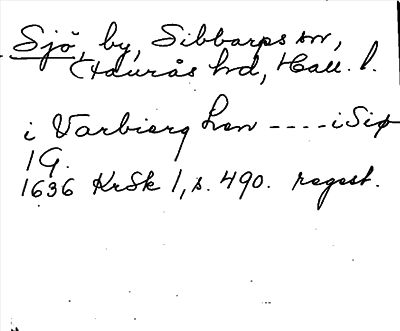 Sjö, by, Sibbarps sn,
Himle hd, Hall. l.
i Varbierg Len ---- i Siø
1 G.
1636 KrSk 1, s. 490. regest.